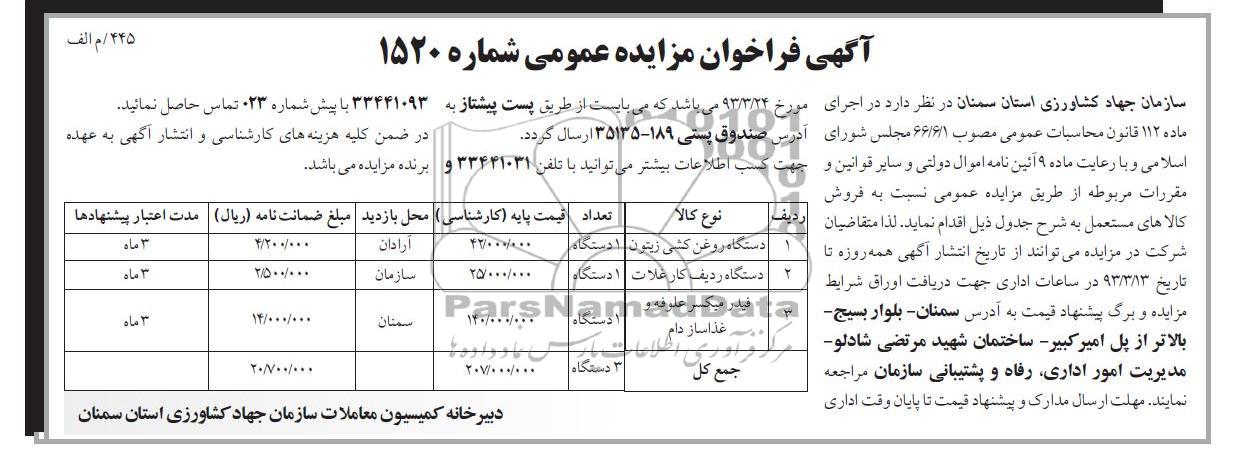 ۴۴۵/م الف
آگهی فراخوان مزایده عمومی شماره ۱۵۲۰
سازمان جهاد کشاورزی استان سمنان در نظر دارد در اجرای
ماده ۱۱۲ قانون محاسبات عمومی مصوب ۶۶/۶/۱ مجلس شورای
اسلامی و با رعایت ماده ۹ آئین نامه اموال دولتی و سایر قوانین و
مقررات مربوطه از طریق مزایده عمومی نسبت به فروش
کالاهای مستعمل به شرح جدول ذیل اقدام نماید. لذا متقاضیان
شرکت در مزایده می توانند از تاریخ انتشار آگهی همه روزه تا
تاریخ ۹۳/۳/۱۳ در ساعات اداری جهت دریافت اوراق شرایط
مزایده و برگ پیشنهاد قیمت به آدرس سمنان- بلوار بسیج-
بالاتر از پل امیرکبیر- ساختمان شهید مرتضی شادلو-
مدیریت امور اداری، رفاه و پشتیبانی سازمان مراجعه
نمایند. مهلت ارسال مدارک و پیشنهاد قیمت تا پایان وقت اداری
مورخ ۹۳/۳/۲۴ می باشد که می بایست از طریق پست پیشتاز به
آدرس صندوق پستی ۱۸۹-۳۵۱۳۵ ارسال گردد.
جهت کسب اطلاعات بیشتر می توانید با تلفن ۳۳۴۴۱۰۳۱ و
۳۳۴۴۱۰۹۳ با پیش شماره ۰۲۳ تماس حاصل نمائید.
در ضمن کلیه هزینه های کارشناسی و انتشار آگهی به عهده
برنده مزایده می باشد.
ردیف نوع کالا تعداد قیمت پایه (کارشناسی) محل بازدید مبلغ ضمانت نامه (ریال) مدت اعتبار پیشنهادها
۱ دستگاه روغن کشی زیتون ۱ دستگاه ۴۲/۰۰۰/۰۰۰ آرادان ۴/۲۰۰/۰۰۰ ۳ ماه
۲ دستگاه ردیف کار غلات ۱ دستگاه ۲۵/۰۰۰/۰۰۰ سازمان ۲/۵۰۰/۰۰۰ ۳ ماه
۳ فیدر میکسر علوفه و
غذاساز دام ۱ دستگاه ۱۴۰/۰۰۰/۰۰۰ سمنان ۱۴/۰۰۰/۰۰۰ ۳ ماه
جمع کل ۳ دستگاه ۲۰۷/۰۰۰/۰۰۰ ۲۰/۷۰۰/۰۰۰
ParsNamadData
مرکز فرآوری اطلاعات پارس نماد داده ها
دبیرخانه کمیسیون معاملات سازمان جهاد کشاورزی استان سمنان